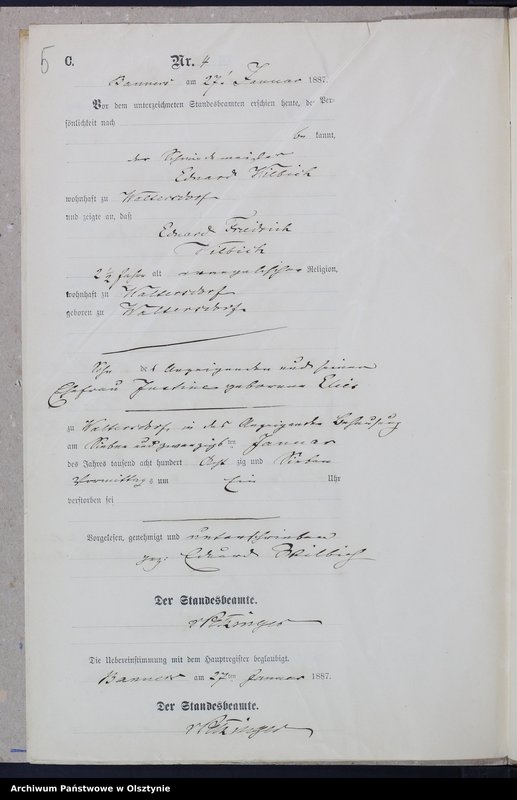 5
C. Nr. 4
Banners am 27t Januar 1887.
Vor dem unterzeichneten Standesbeamten erschien heute, der Per-
sönlichkeit nach
be kannt,
der Schmiedemeister
Eduard
wohnhaft zu Waltersdorf
und zeigte an, daß
Eduard Friedrich
2½ Jahr alt evangelischer Religion,
wohnhaft zu Waltersdorf
geboren zu Waltersdorf
Sohn des Anzeigenden und seiner
Ehefrau Justine geborene
zu Waltersdorf in des Anzeigenden Behausung
am Sieben und zwanzigsten Januar
des Jahres tausend acht hundert Acht zig und Sieben
Vormittags um Ein Uhr
verstorben sei
Vorgelesen, genehmigt und unterschrieben
gez. Eduard
Der Standesbeamte.
Die Uebereinstimmung mit dem Hauptregister beglaubigt.
Banners am 27ten Januar 1887.
Der Standesbeamte.
Archiwum Państwowe w Olsztynie